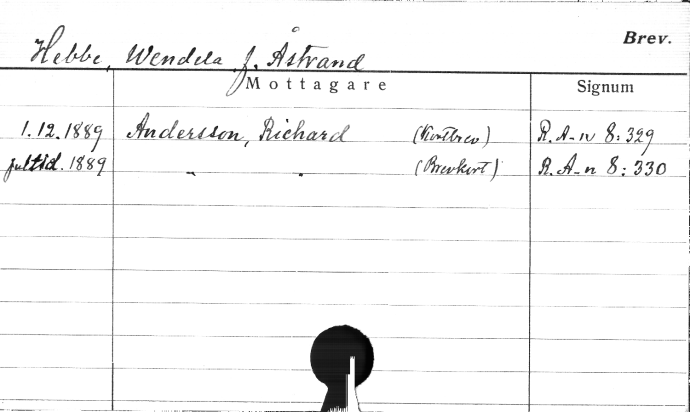 Brev.
Hebbe, Wendela f. Åstrand
Mottagare Signum
1.12.1889 Andersson, Richard (Kortbrev) R. A-n 8:329
jultid. 1889 " " (Brevkort) R. A-n 8:330